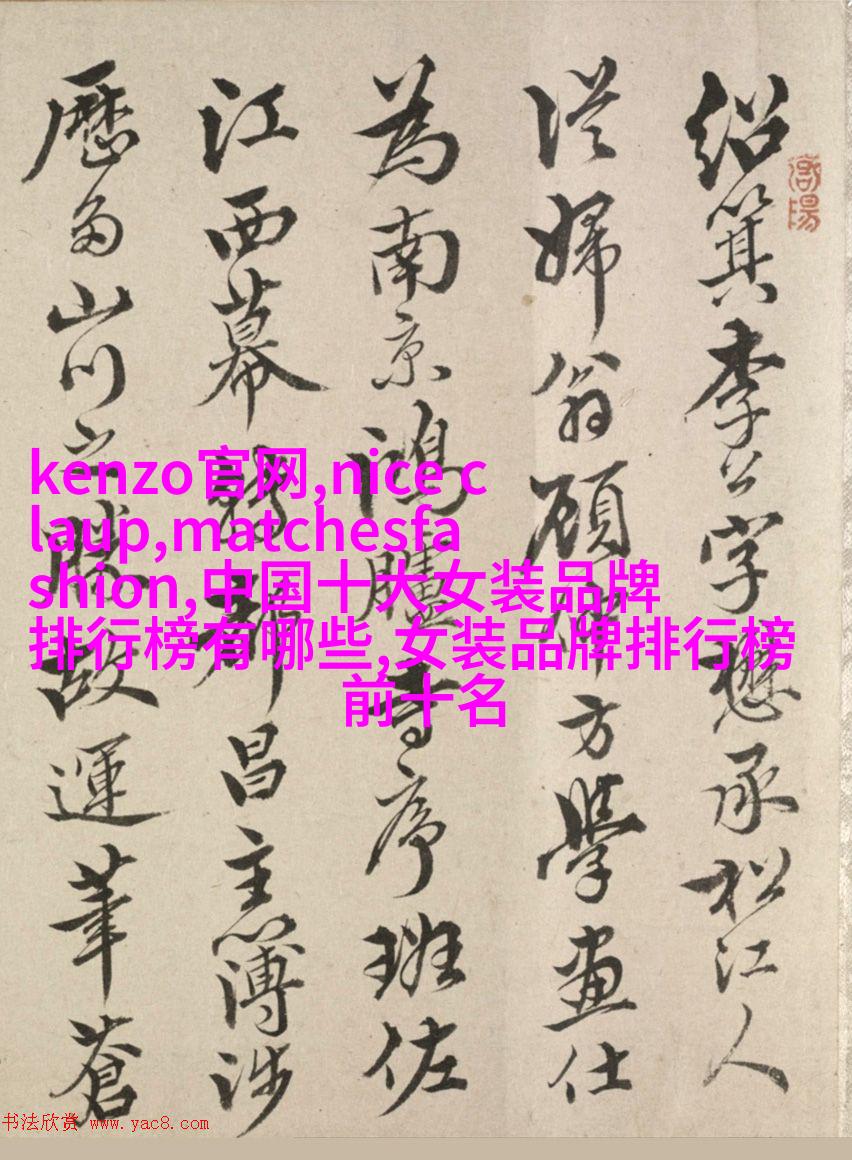 紹箕李公字懋承松江人
從婦翁顧方學畫仕
為南京鴻臚寺序班佐
江西幕都昌主簿涉
歷多山川之勝故運筆蒼
kenzo官网,nice c
laup,matchesfa
shion,中国十大女装品牌
排行榜有哪些,女装品牌排行榜
前十名
书法欣赏 www.yac8.com